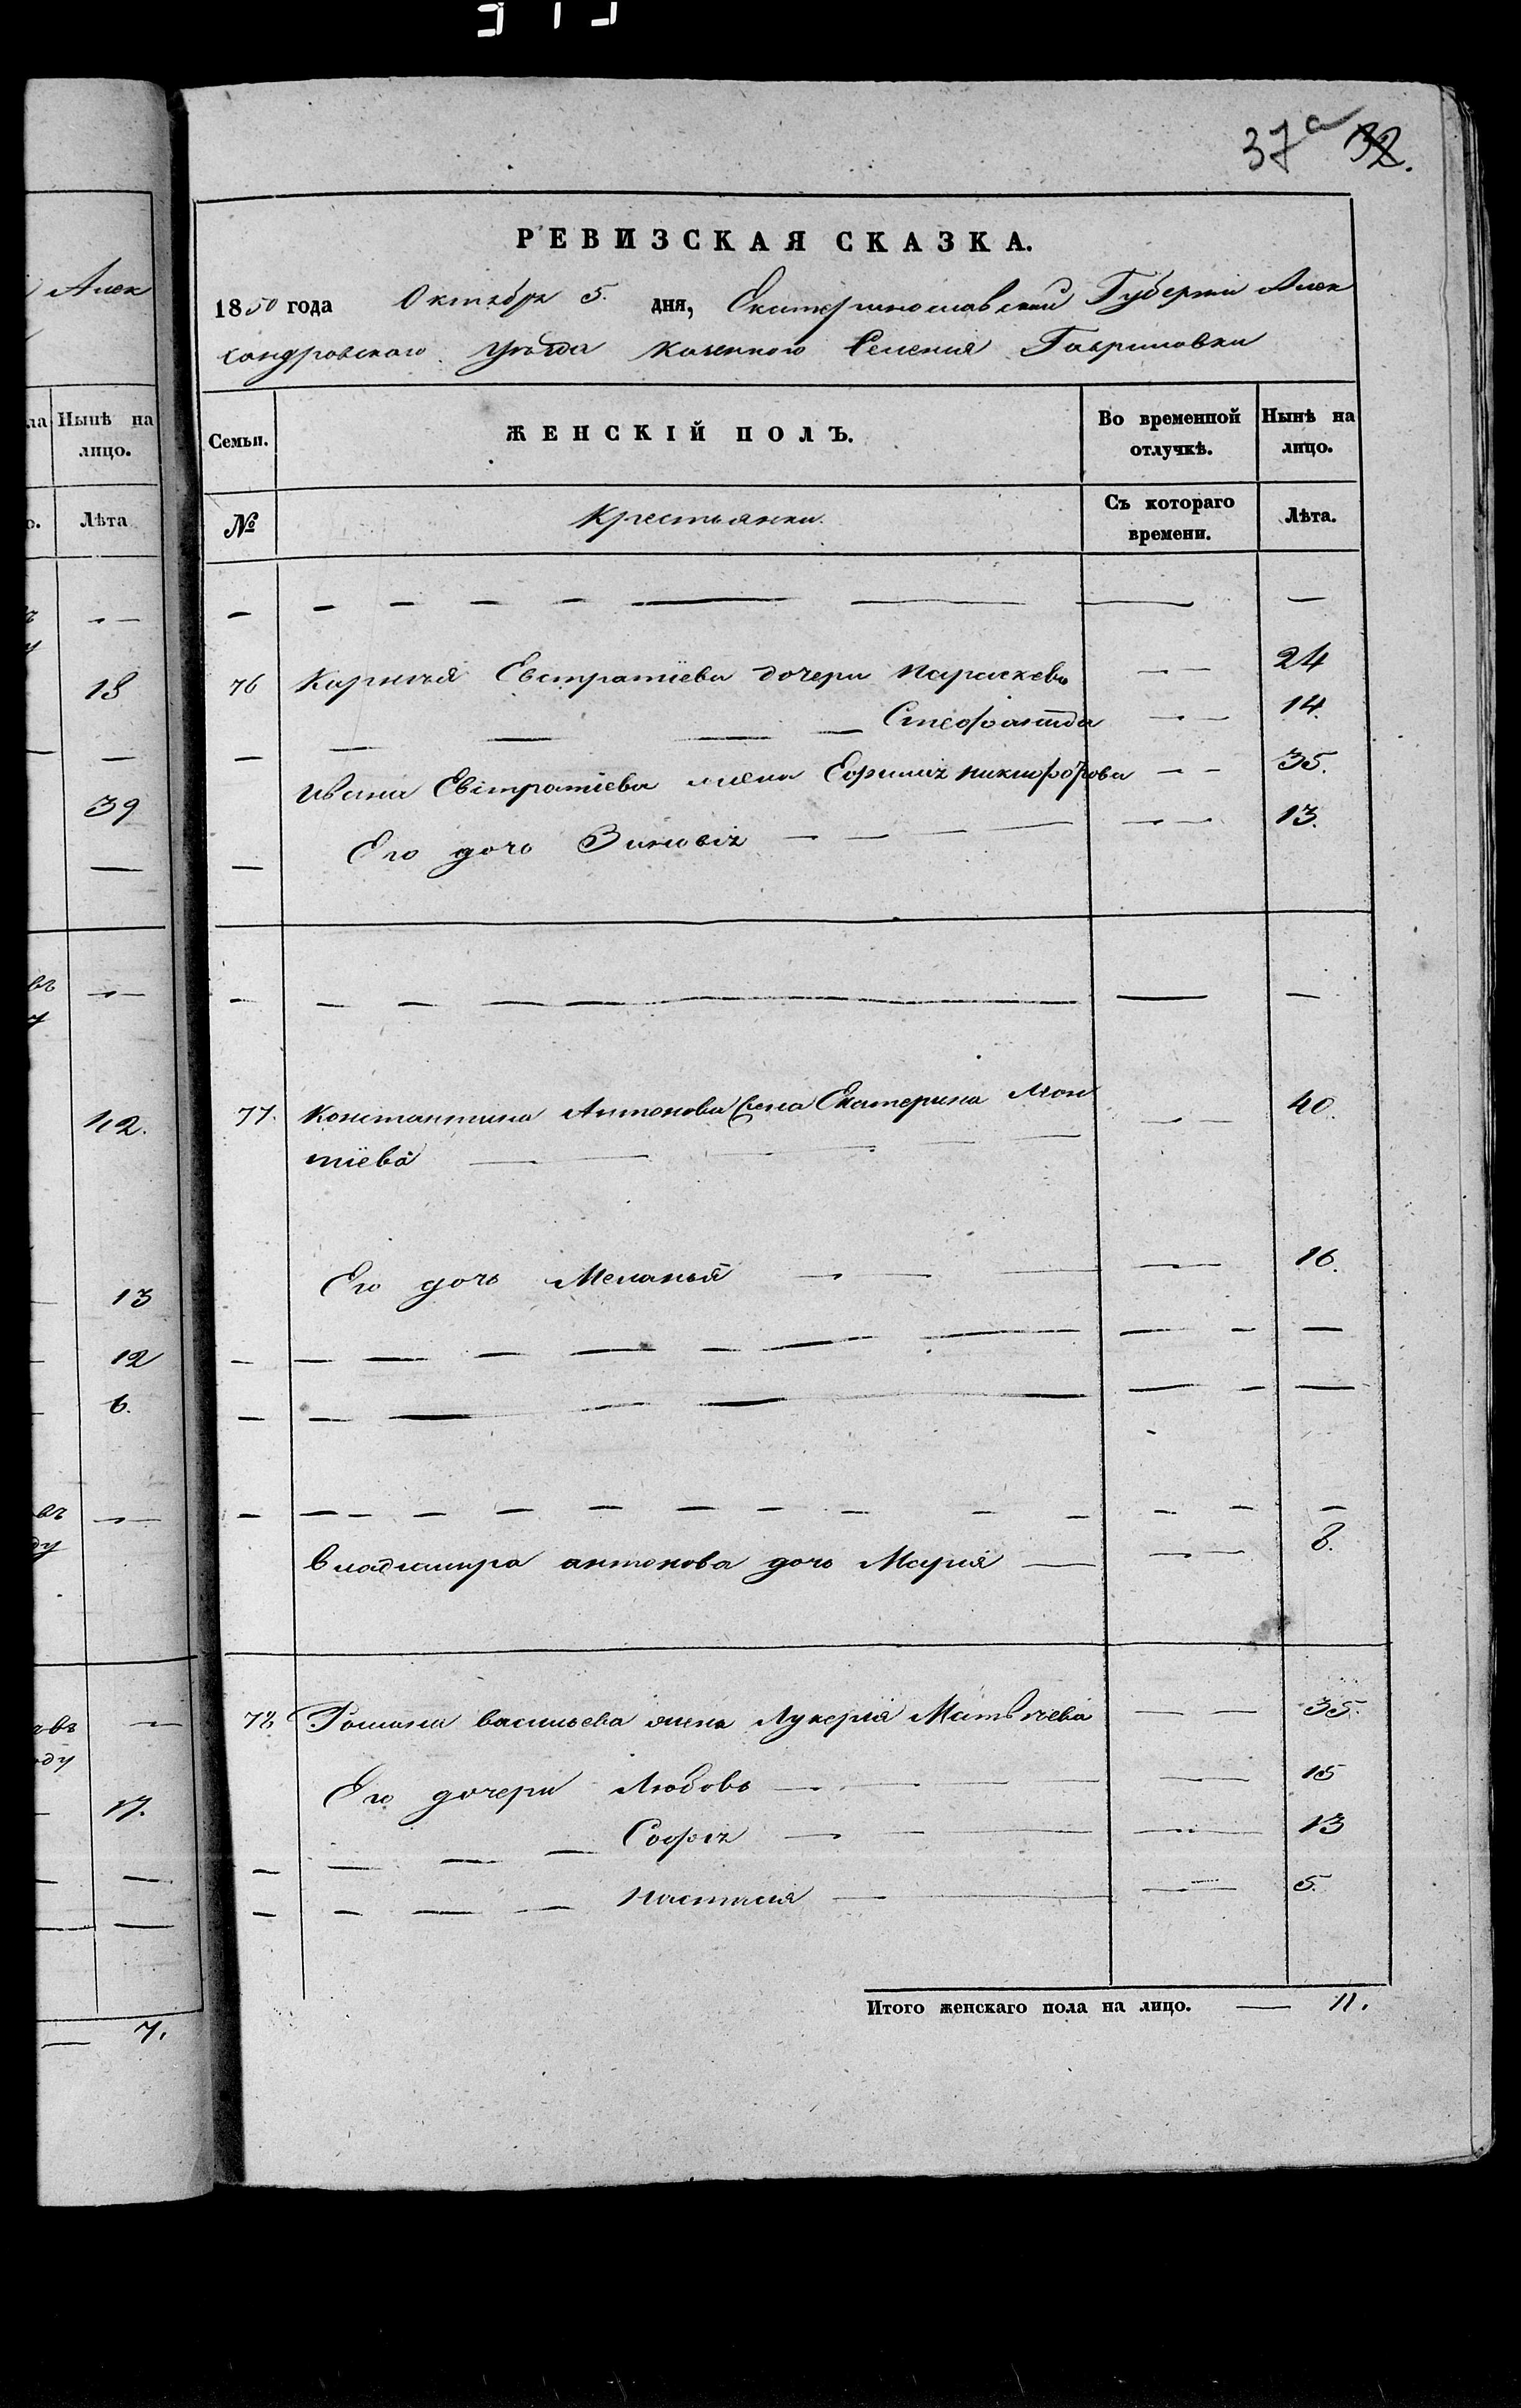 37а 32.
РЕВИЗСКАЯ СКАЗКА.
1850 года Октября 5. дня, Екатеринославской Губернии Алек
сандровскаго уѣзда казенного Селения Гавриловки
Семьи. ЖЕНСКІЙ ПОЛЪ. Во временной отлучкѣ. Нынѣ на лицо.
№ Крестьянки. Съ котораго времени. Лѣта.
76 Евстратіева дочери Параскева 24
Стефанида 14.
Ивана Евстратіева жена Евфимия Никифорова 35.
Его дочь Зиновія 13.
77. Константина Антонова жена Екатерина Леон 40.
тіева
Его дочь Меланья 16.
Владимира антонова дочь Марія 8.
78 Романа васильева жена Лукерія Матвѣева 35.
Его дочери Любовь 15
Софія 13
Настасия 5.
Итого женскаго пола на лицо. 11.
Алек
Нынѣ на лицо.
Лѣта
18
39
42.
13
12
6.
17.
7.